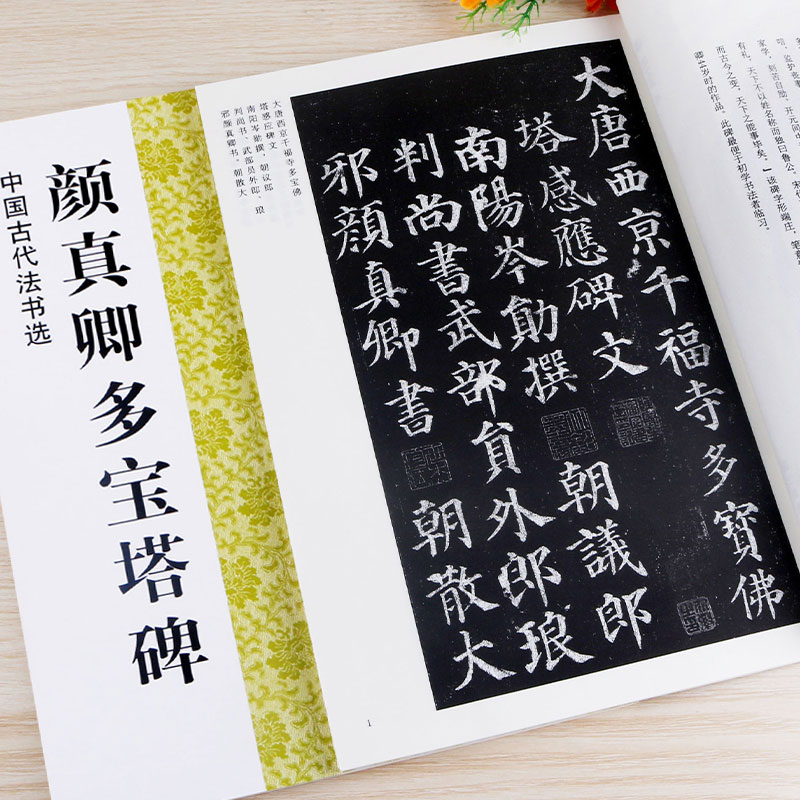 中国古代法书选
颜真卿多宝塔碑
大唐西京千福寺多宝佛
塔感应碑文
南阳岑勋撰，朝议郎
判尚书、武部员外郎、琅
邪颜真卿书，朝散大
大唐西京千福寺多寶佛
塔感應碑文
南陽岑勛撰 朝議郎
判尚書武部貟外郎琅
邪顏真卿書 朝散大
家学，刻苦自励，开元间
有礼，天下不以姓名称而独曰鲁公。宋代
而古今之变，天下之能事毕矣。”该碑字形端庄，笔
卿44岁时的作品，此碑最便于初学书法者临习。
1